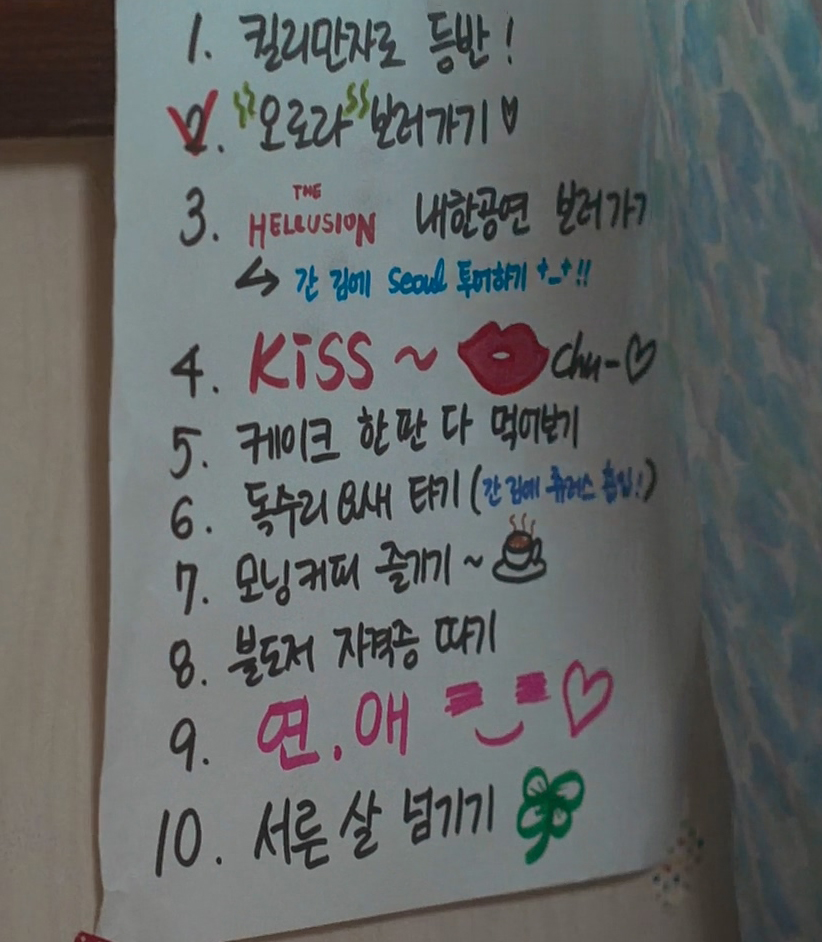 1. 킬리만자로 등반!
2. 오로라 보러가기♡
3. THE HELLUSION 내한공연 보러가기
↪ 간 김에 Seoul 투어하기 +_+!!
4. KiSS ~ Chu-♡
5. 케이크 한 판 다 먹어보기
6. 독수리 요새 타기 (간 김에 츄러스 흡입!)
7. 모닝커피 즐기기~
8. 불도저 자격증 따기
9. 연.애 ♡
10. 서른 살 넘기기